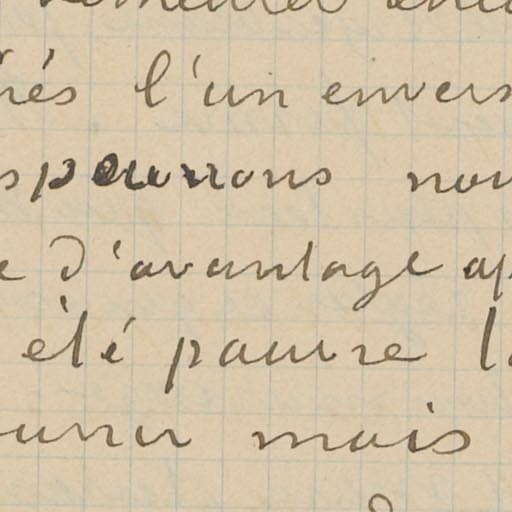 rés l'un envers
spourrons nou
e d'avantage ap
été pauvre l
mais